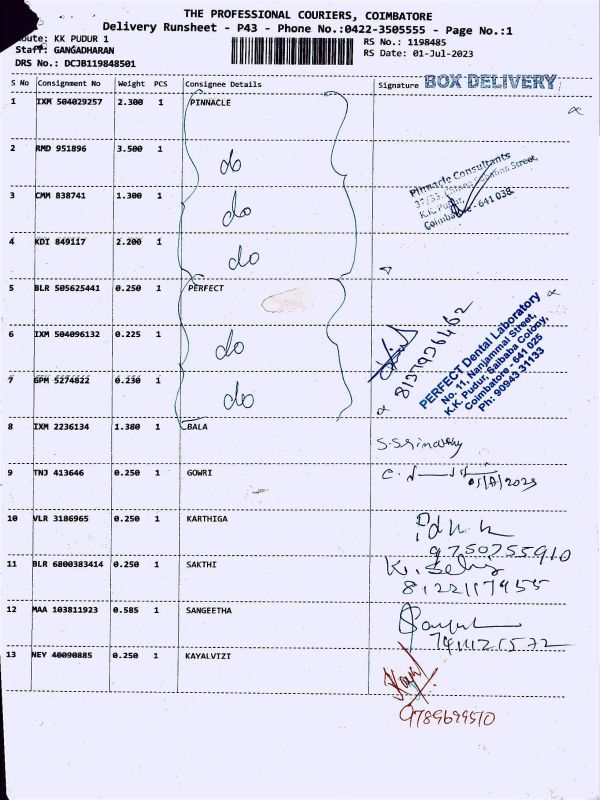 THE PROFESSIONAL COURIERS, COIMBATORE
Delivery Runsheet - P43 - Phone No.:0422-3505555 - Page No.:1
Route: KK PUDUR 1
RS No.: 1198485
Staff: GANGADHARAN
RS Date: 01-Jul-2023
DRS No.: DCJB119848501
S No Consignment No Weight PCS Consignee Details Signature BOX DELIVERY
1 IXM 504029257 2.300 1 PINNACLE
2 RMD 951896 3.500 1 do
Pinnacle Consultants
K.K. Pudur,
Coimbatore - 641 038.
3 CMM 838741 1.300 1 do
4 KDI 849117 2.200 1 do
5 BLR 505625441 0.250 1 PERFECT
6 IXM 504096132 0.225 1 do
8137936462
PERFECT Dental Laboratory
No. 11, Nanjammal Street,
K.K. Pudur, Saibaba Colony,
Coimbatore - 641 025
Ph: 90943 31133
7 GPM 5274822 0.230 1 do
8 IXM 2236134 1.380 1 BALA
9 TNJ 413646 0.250 1 GOWRI
10 VLR 3186965 0.250 1 KARTHIGA
9750755910
11 BLR 6800383414 0.250 1 SAKTHI
8122117955
12 MAA 103811923 0.585 1 SANGEETHA
13 NEY 40090885 0.250 1 KAYALVIZI
9789699570